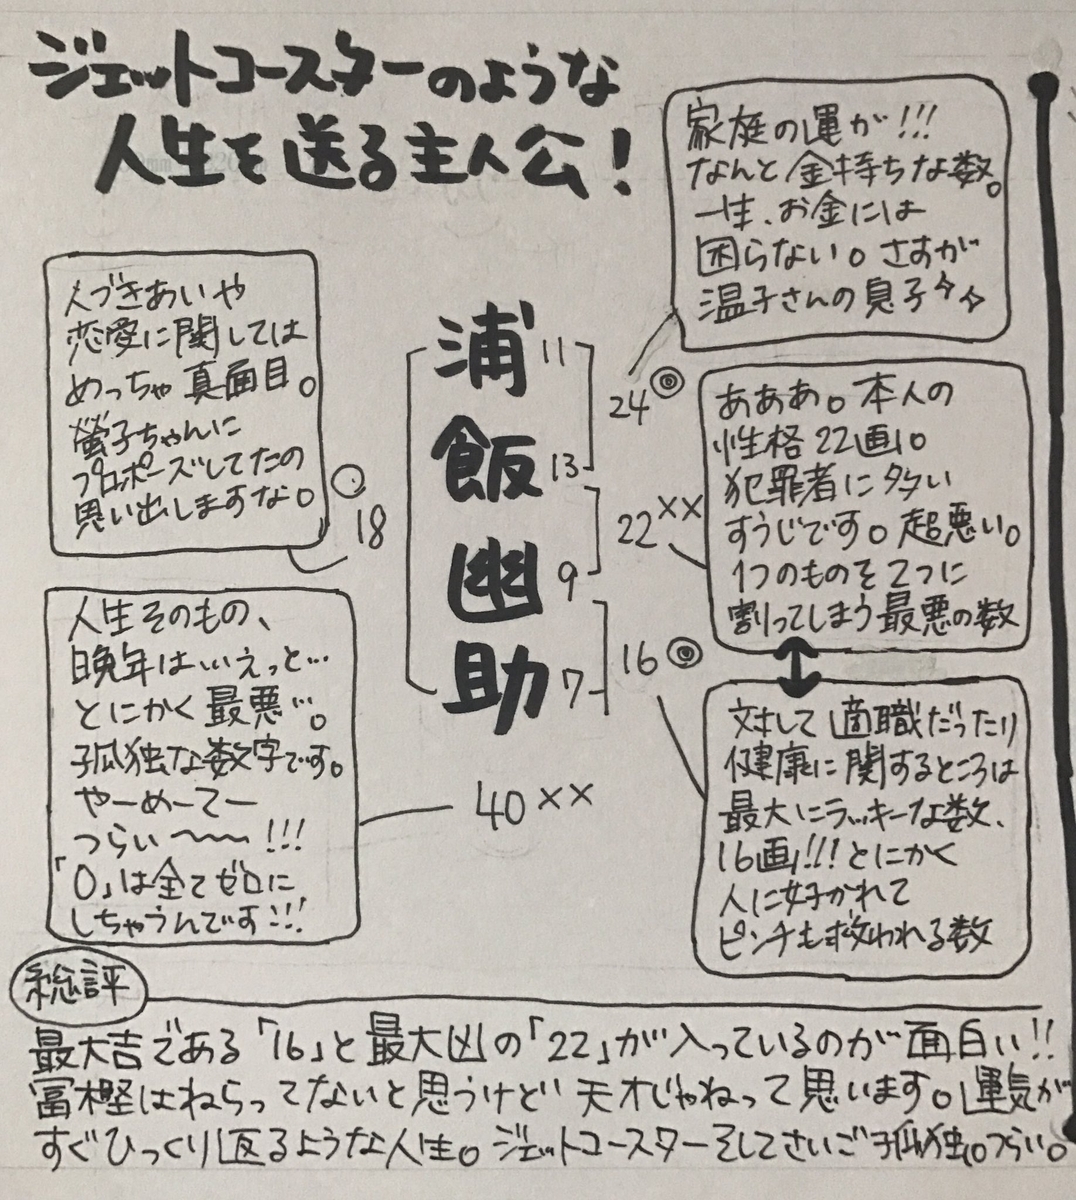 ジェットコースターのような
人生を送る主人公!
家庭の運が!!!
なんと金持ちな数。
一生、お金には
困らない。さすが
温子さんの息子
人づきあいや
恋愛に関しては
めっちゃ真面目。
螢子ちゃんに
プロポーズしてたの
思い出しますな。
18
浦 11
飯 13
幽 9
助 7
24
22 ××
16
40 ××
あああ。本人の
性格22画。
犯罪者に多い
すうじです。超悪い。
1つのものを2つに
割ってしまう最悪の数
人生そのもの、
晩年は…えっと…
とにかく最悪…。
孤独な数字です。
やーめーてー
つらい〜〜!!!
「0」は全てゼロに
しちゃうんです!!!
対して適職だったり
健康に関するところは
最大にラッキーな数、
16画!!!とにかく
人に好かれて
ピンチも救われる数
総評
最大吉である「16」と最大凶の「22」が入っているのが面白い!!
冨樫はねらってないと思うけど天才じゃねって思います。運気が
すぐひっくり返るような人生。ジェットコースターそしてさいご孤独。つらい。